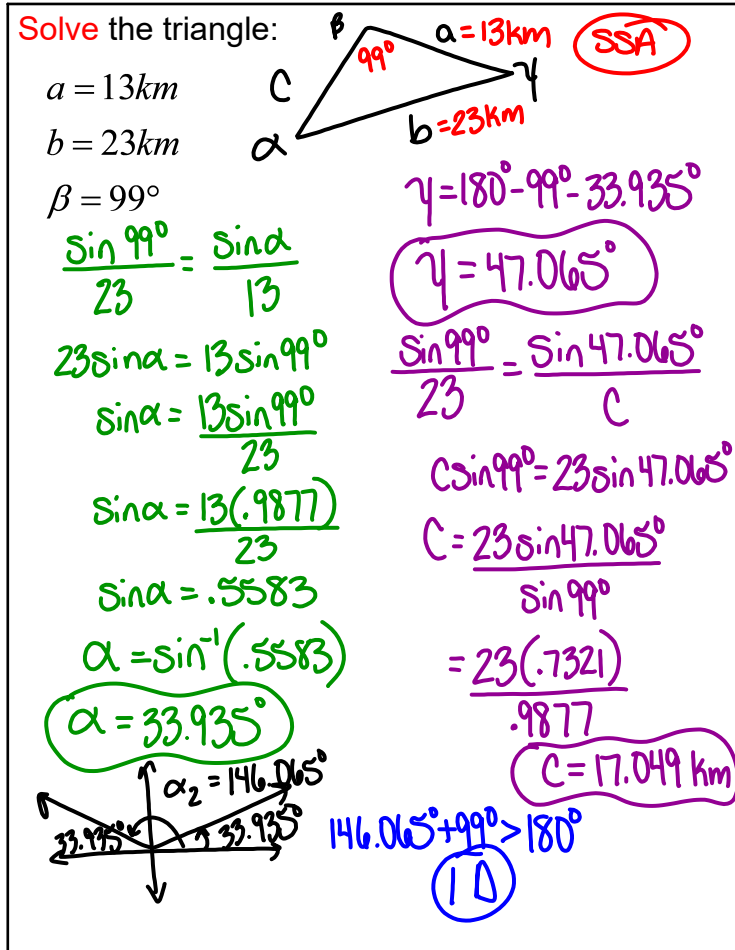 Solve the triangle:
a = 13km
b = 23km
β = 99°
β
99°
a = 13km
SSA
C
γ
α
b = 23km
sin 99° / 23 = sinα / 13
23sinα = 13sin99°
sinα = 13sin99° / 23
sinα = 13(.9877) / 23
sinα = .5583
α = sin⁻¹(.5583)
α = 33.935°
α₂ = 146.065°
33.935°
33.935°
γ = 180° - 99° - 33.935°
γ = 47.065°
sin99° / 23 = sin47.065° / C
Csin99° = 23sin47.065°
C = 23sin47.065° / sin99°
= 23(.7321) / .9877
C = 17.049 km
146.065° + 99° > 180°
1 Δ